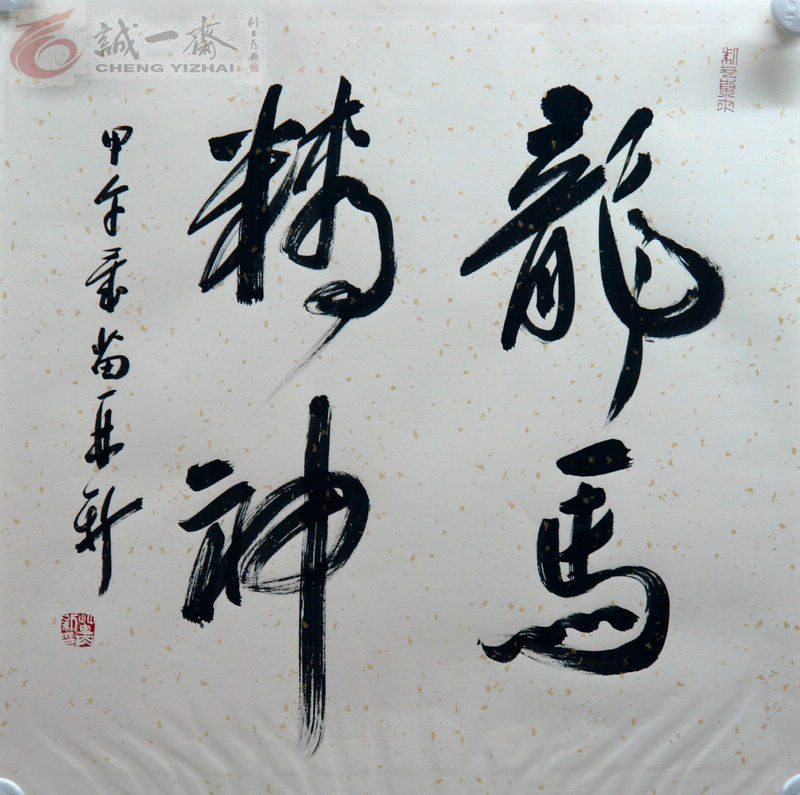 龍馬
精神
甲午夏苗再新
誠一齋
CHENG YIZHAI